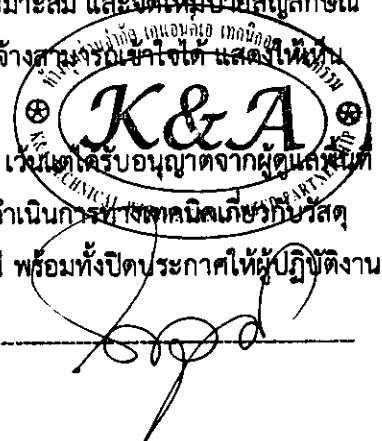 เหมาะสม และจัดให้มีป้ายสัญลักษณ์
จ้างสามารถเข้าใจได้ แสดงให้เห็น
K&A
เว้นแต่ได้รับอนุญาตจากผู้ดูแลพื้นที่
ดำเนินการทางเทคนิคเกี่ยวกับวัสดุ
พร้อมทั้งปิดประกาศให้ผู้ปฏิบัติงาน